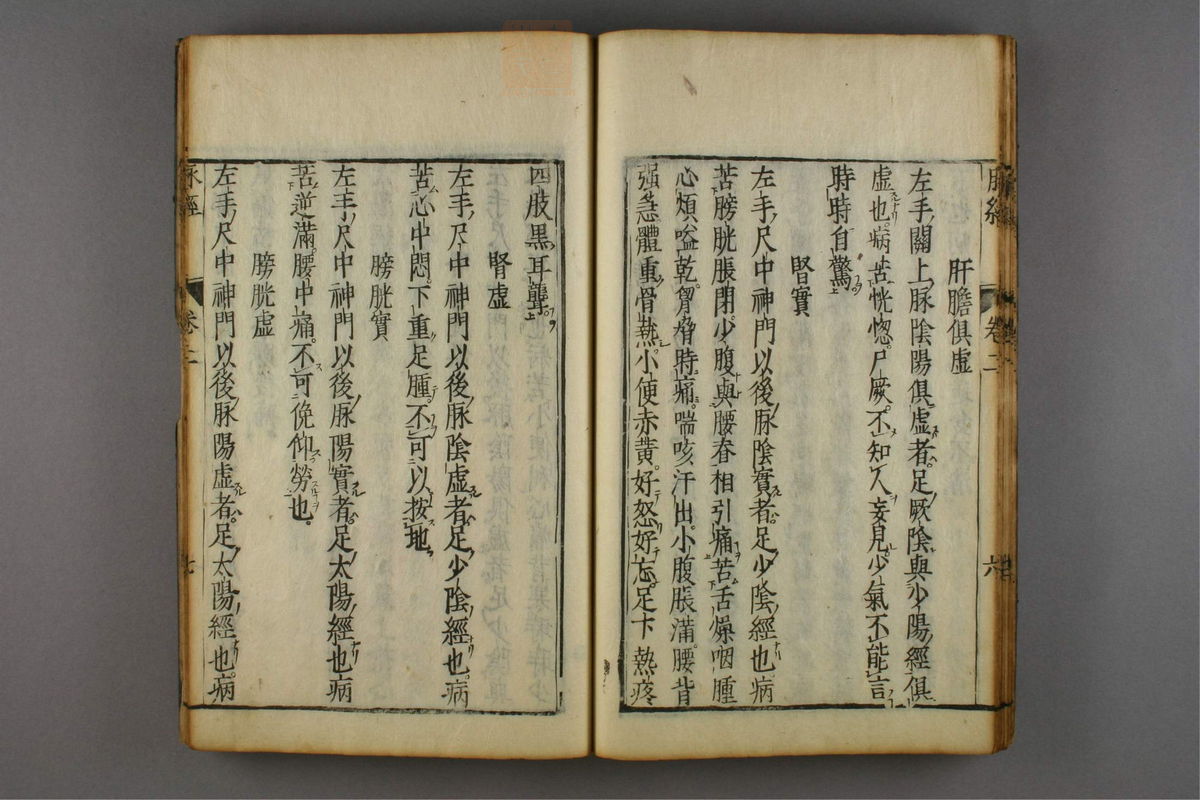 脉經 卷二 六
肝膽俱虛
左手關上脉陰陽俱虛者足厥陰與少陽經俱
虛也病苦恍惚尸厥不知人妄見少氣不能言
時時自驚
腎實
左手尺中神門以後脉陰實者足少陰經也病
苦膀胱脹閉少腹與腰脊相引痛苦舌燥咽腫
心煩嗌乾胷脅時痛喘咳汗出小腹脹滿腰背
强急體重骨熱小便赤黃好怒好忘足下熱疼
四肢黑耳聾
腎虛
左手尺中神門以後脉陰虛者足少陰經也病
苦心中悶下重足腫不可以按地
膀胱實
左手尺中神門以後脉陽實者足太陽經也病
苦逆滿腰中痛不可俛仰勞也
膀胱虛
左手尺中神門以後脉陽虛者足太陽經也病
脉經 卷二 七